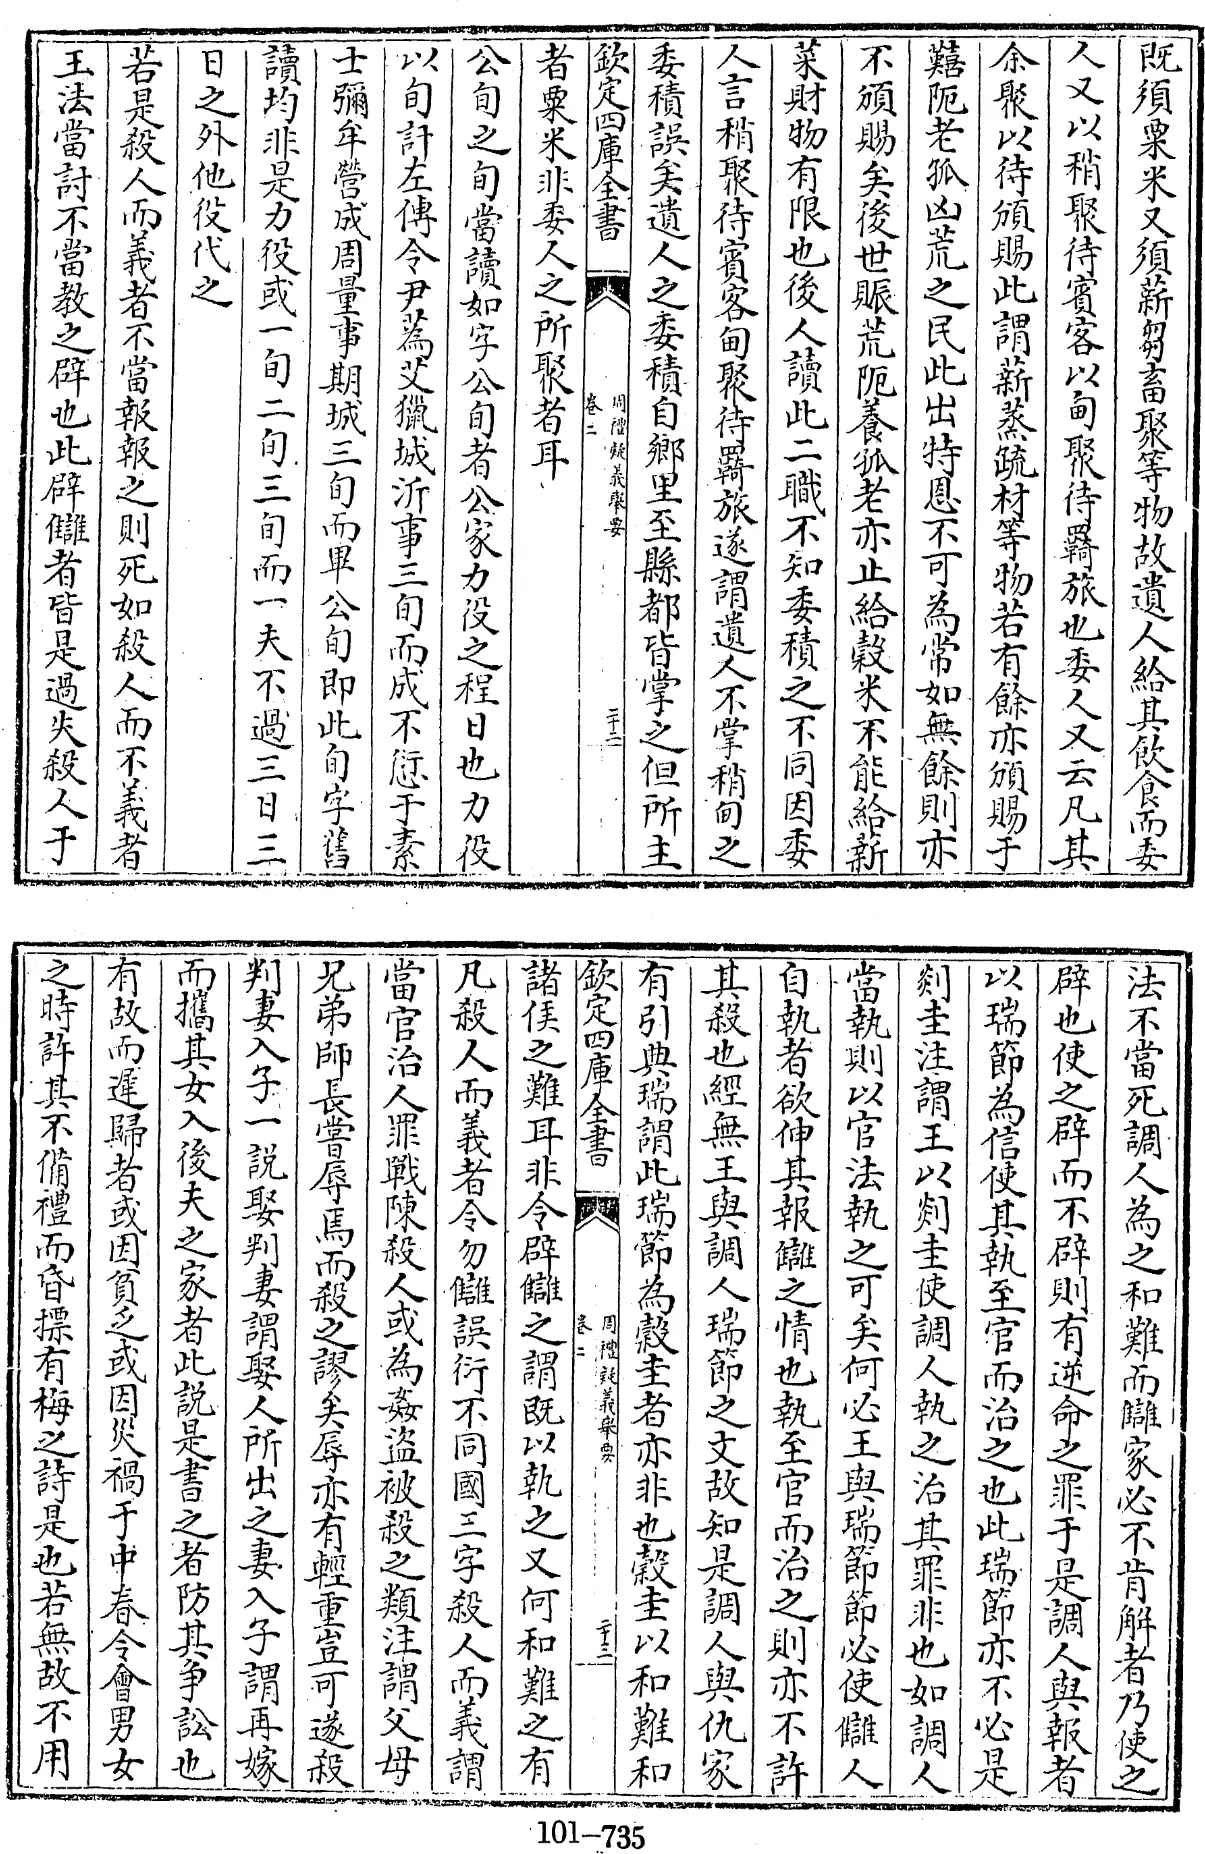 既須粟米又須薪芻畜聚等物故遺人給其飲食而委
人又以稍聚待賓客以甸聚待羇旅也委人又云凡其
余聚以待頒賜此謂薪蒸疏材等物若有餘亦頒賜于
囏阨老孤凶荒之民此出特恩不可為常如無餘則亦
不頒賜矣後世賑荒阨養孤老亦止給穀米不能給薪
菜財物有限也後人讀此二職不知委積之不同因委
人言稍聚待賓客甸聚待羇旅遂謂遺人不掌稍甸之
委積誤矣遺人之委積自鄉里至縣都皆掌之但所主
欽定四庫全書
周禮疑義舉要
卷二
二十二
者粟米非委人之所聚者耳
公旬之旬當讀如字公旬者公家力役之程日也力役
以旬計左傳令尹蒍艾獵城沂事三旬而成不愆于素
士彌牟營成周量事期城三旬而畢公旬即此旬字舊
讀均非是力役或一旬二旬三旬而一夫不過三日三
日之外他役代之
若是殺人而義者不當報報之則死如殺人而不義者
王法當討不當教之辟也此辟讎者皆是過失殺人于
法不當死調人為之和難而讎家必不肯解者乃使之
辟也使之辟而不辟則有逆命之罪于是調人與報者
以瑞節為信使其執至官而治之也此瑞節亦不必是
剡圭注謂王以剡圭使調人執之治其罪非也如調人
當執則以官法執之可矣何必王與瑞節節必使讎人
自執者欲伸其報讎之情也執至官而治之則亦不許
其殺也經無王與調人瑞節之文故知是調人與仇家
有引典瑞謂此瑞節為穀圭者亦非也穀圭以和難和
欽定四庫全書
周禮疑義舉要
卷二
二十三
諸侯之難耳非令辟讎之謂既以執之又何和難之有
凡殺人而義者令勿讎誤衍不同國三字殺人而義謂
當官治人罪戰陳殺人或為姦盜被殺之類注謂父母
兄弟師長嘗辱焉而殺之謬矣辱亦有輕重豈可遂殺
判妻入子一說娶判妻謂娶人所出之妻入子謂再嫁
而攜其女入後夫之家者此說是書之者防其爭訟也
有故而遲歸者或因貧乏或因災禍于中春令會男女
之時許其不備禮而昏摽有梅之詩是也若無故不用
101-735